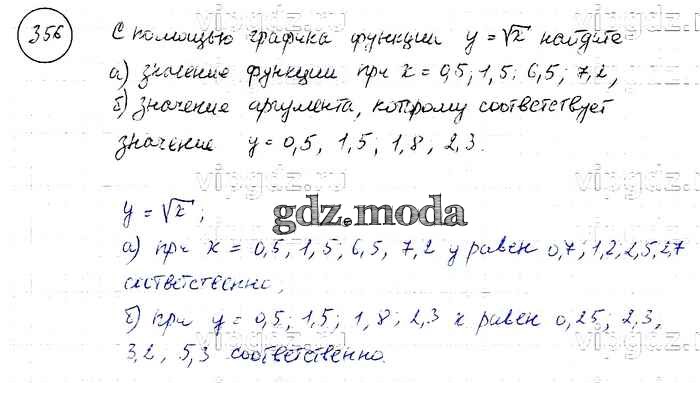 356
С помощью графика функции y = √x найдите
а) значение функции при x = 0,5; 1,5; 6,5; 7,2,
б) значение аргумента, которому соответствует
значение y = 0,5, 1,5; 1,8, 2,3.
y = √x;
gdz.moda
а) при x = 0,5, 1,5; 6,5, 7,2 y равен 0,7; 1,2; 2,5; 2,7
соответственно;
б) при y = 0,5; 1,5; 1,8; 2,3 x равен 0,25; 2,3,
3,2, 5,3 соответственно.
vipgdz.ru